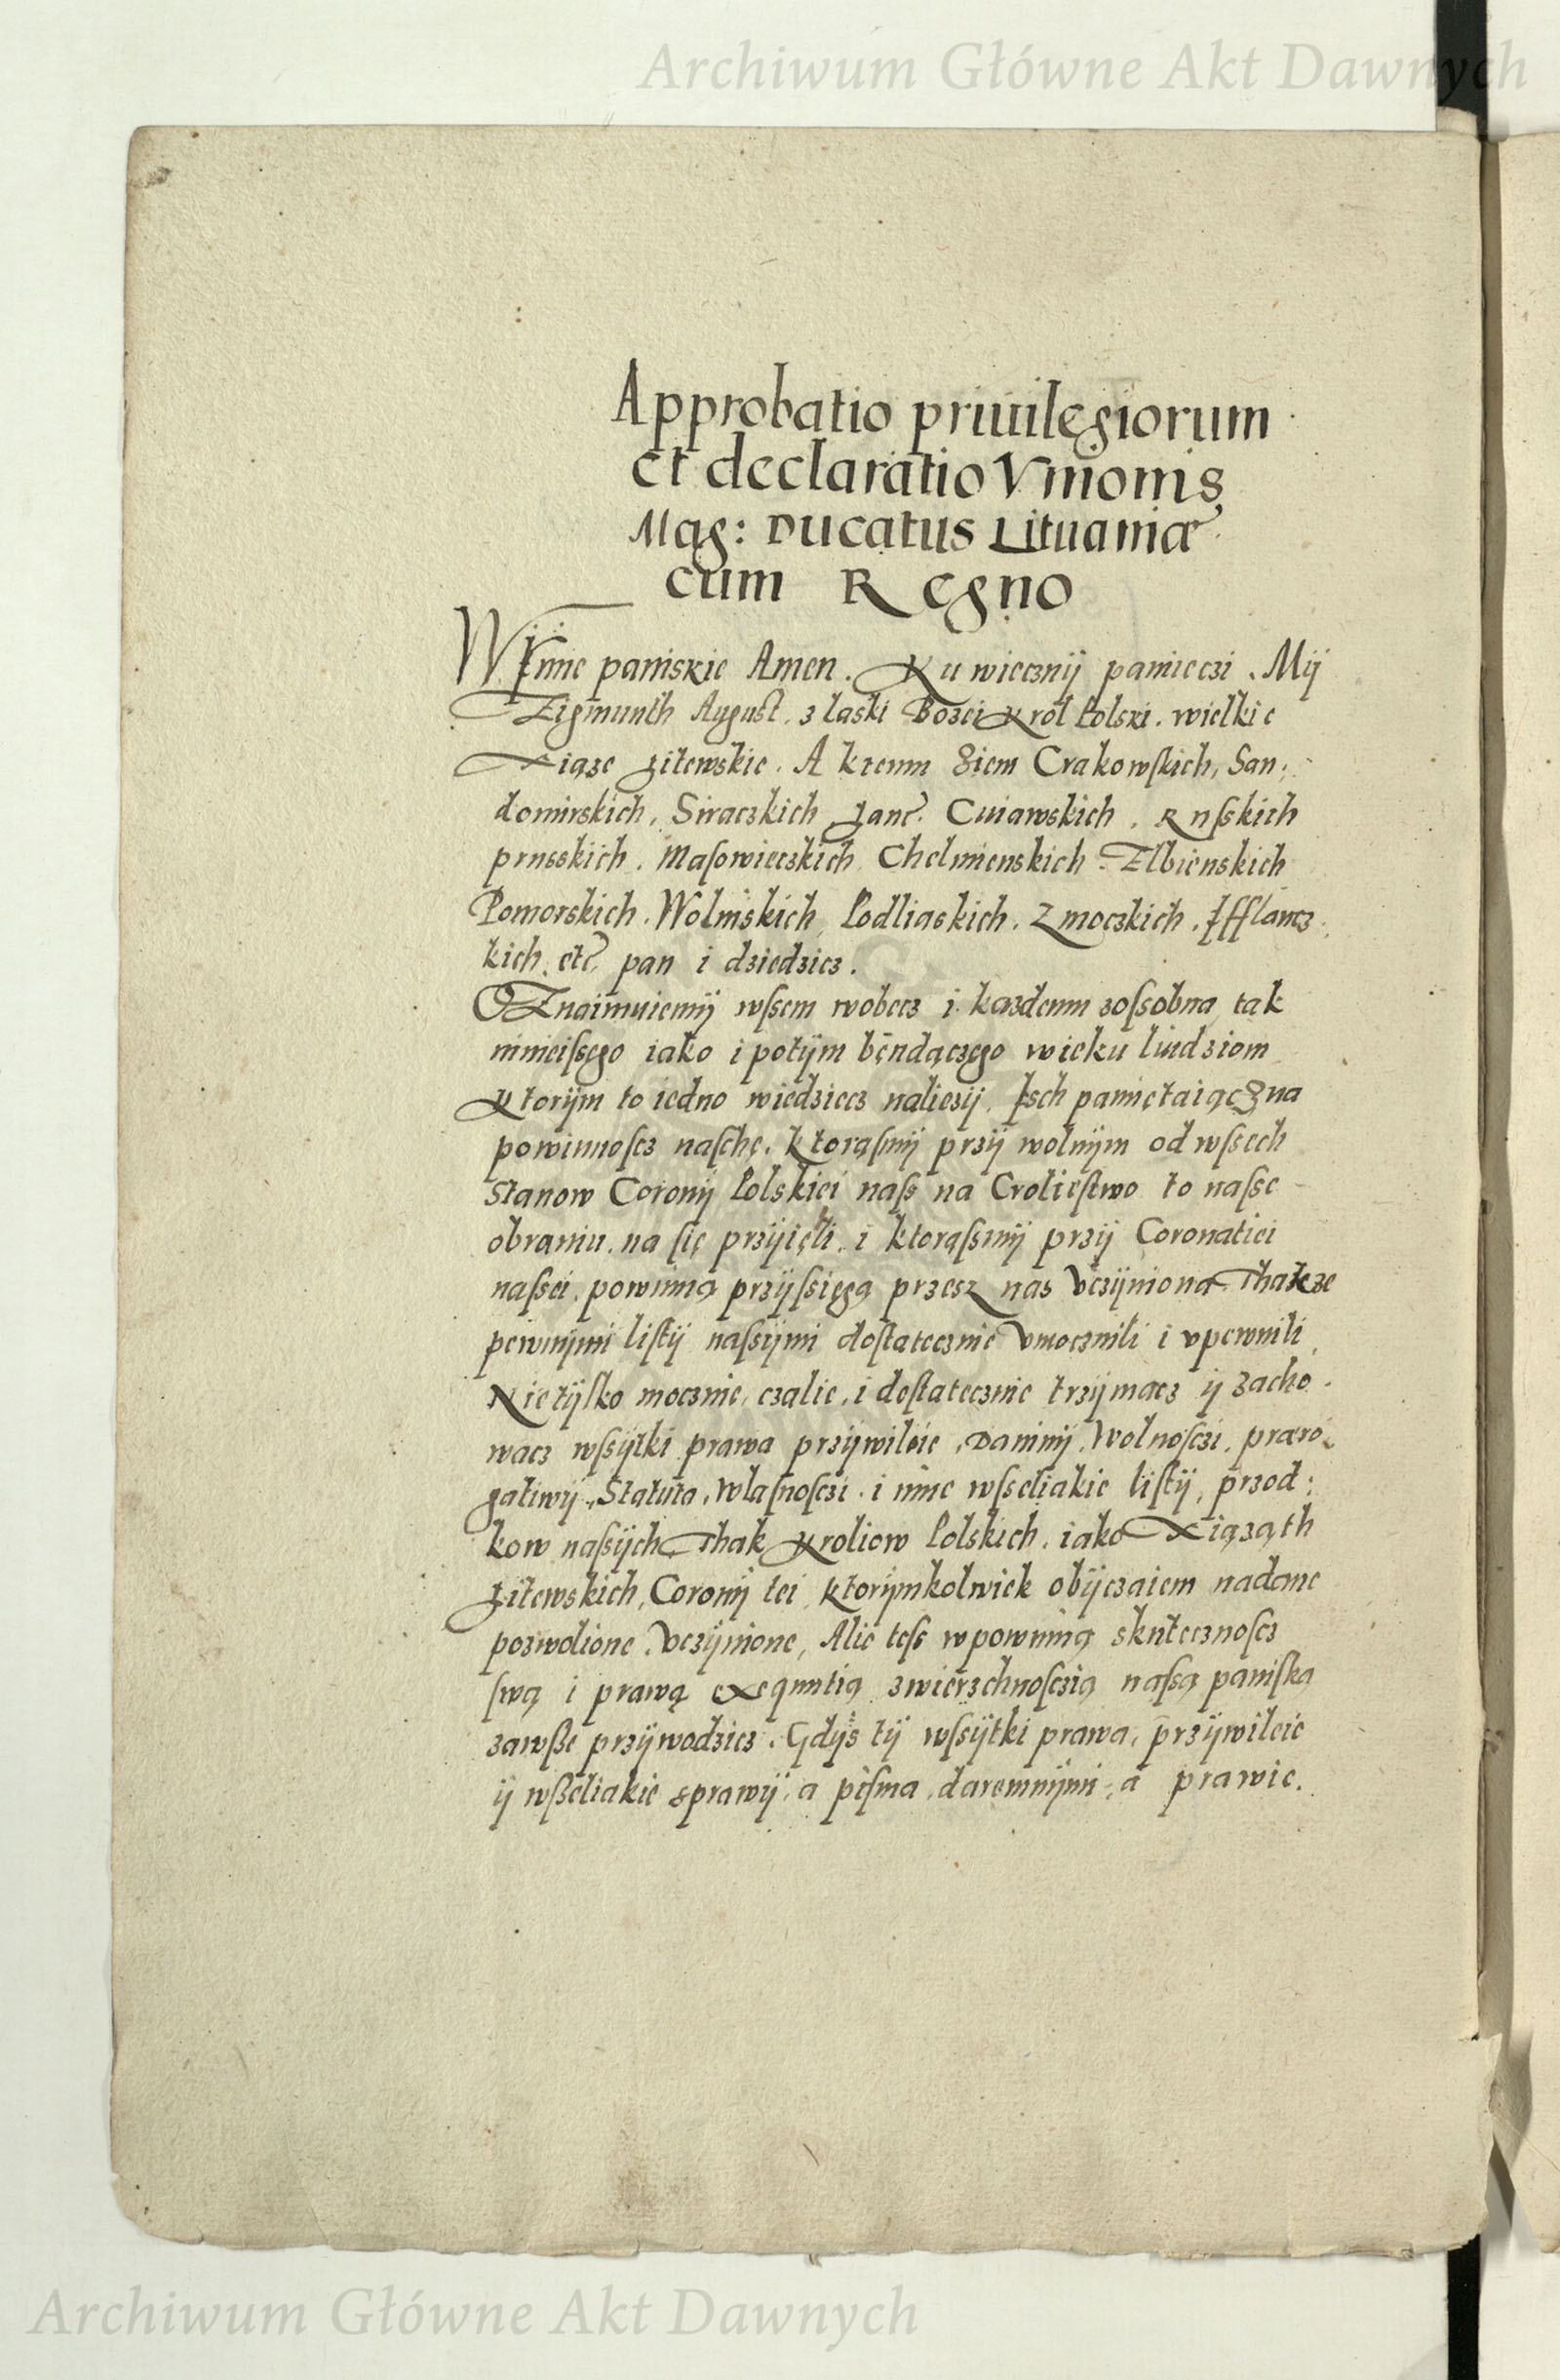 Archiwum Główne Akt Dawnych
Approbatio priuilegiorum
et declaratio Vnionis
Mag: Ducatus Lituaniæ
cum Regno
W Imie paniskie Amen. Ku wiecznÿ pamieczi. Mÿ
Zigmunth August z laski Bozei Krol Polski. wielkie
Xiąze Litewskie. A kzemu Ziem Crakowſkich, San:
domirskich, Siraczkich Lanc. Cuiawskich. Ruſskich
prusskich. Maſowieczkich Chelmienskich Elbienskich
Pomorskich. Wolinskich Podliaskich. Zmoczkich. Iffłancz
kich etc pan i dziedzicz.
OZnaimuiemÿ wſsem wobecz i kazdemu zoſsobna tak
ninieiſsego iako i potÿm bęndączego wieku liudziom
Ktorÿm to iedno wiedziecz naliezÿ. Isch pamiętaiącz na
powinnoſcz naſchę. Ktorąſmÿ przÿ wolnÿm od wſsech
Stanow Coronÿ Polskiei naſs na Crolieſtwo to naſse
obraniu. na ſię przÿięli. i ktorąſsmÿ przÿ Coronatiei
naſsei. powinną przÿſsięgą przesz nas Vczÿniona Thakze
pewnÿmi liſtÿ naſsÿmi doſtatecznie Vmocznili i vpewnili
Nie tÿlko mocznie, czalie, i doſtatecznie trzÿmacz ÿ zacho.
wacz wſsÿtki prawa przÿwileie, Daninÿ, Wolnoſczi. præro
gatiwÿ, Statuta, Wlaſnoſczi. i inne wſseliakie liſtÿ, przod:
kow naſsÿch Thak Kroliow Polskich. iako Xiąząth
Litewskich, Coronÿ tei, Ktorÿmkolwiek obÿczaiem nadane
pozwolione Vczÿnione, Alie teſs wpowinną skutecznoſcz
ſwą i prawą exequutią zwierzchnoſczią naſsą paniſka
zawſse przÿwodzicz. Gdÿs tÿ wſsÿtki prawa, przÿwileie
ÿ wſseliakie sprawÿ, a piſma, daremnÿmi, a prawie.
Archiwum Główne Akt Dawnych